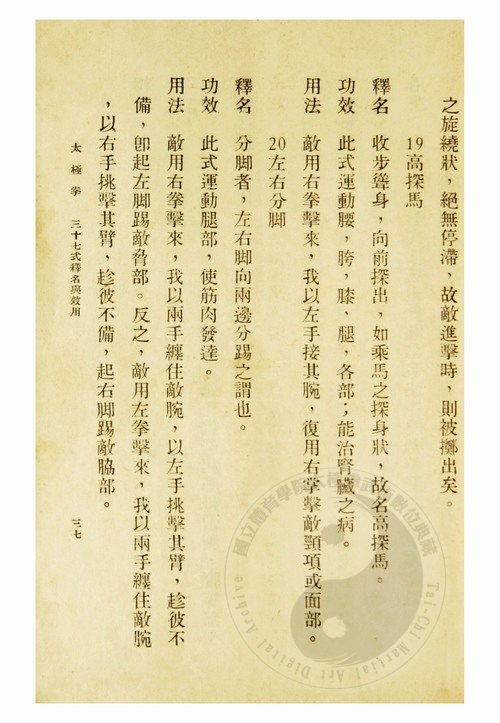 之旋繞狀，絕無停滯，故敵進擊時，則被擲出矣。
19高探馬
釋名　收步聳身，向前探出，如乘馬之探身狀，故名高探馬。
功效　此式運動腰，胯，膝，腿，各部；能治腎臟之病。
用法　敵用右拳擊來，我以左手接其腕，復用右掌擊敵頸項或面部。
20左右分脚
釋名　分脚者，左右脚向兩邊分踢之謂也。
功效　此式運動腿部，使筋肉發達。
用法　敵用右拳擊來，我以兩手纏住敵腕，以左手挑擊其臂，趁彼不
備，卽起左脚踢敵脅部。反之，敵用左拳擊來，我以兩手纏住敵腕
，以右手挑擊其臂，趁彼不備，起右脚踢敵脇部。
太極拳　三十七式釋名與效用
三七
國立體育學院太極拳武術數位典藏
Tai-Chi Martial Art Digital Archive